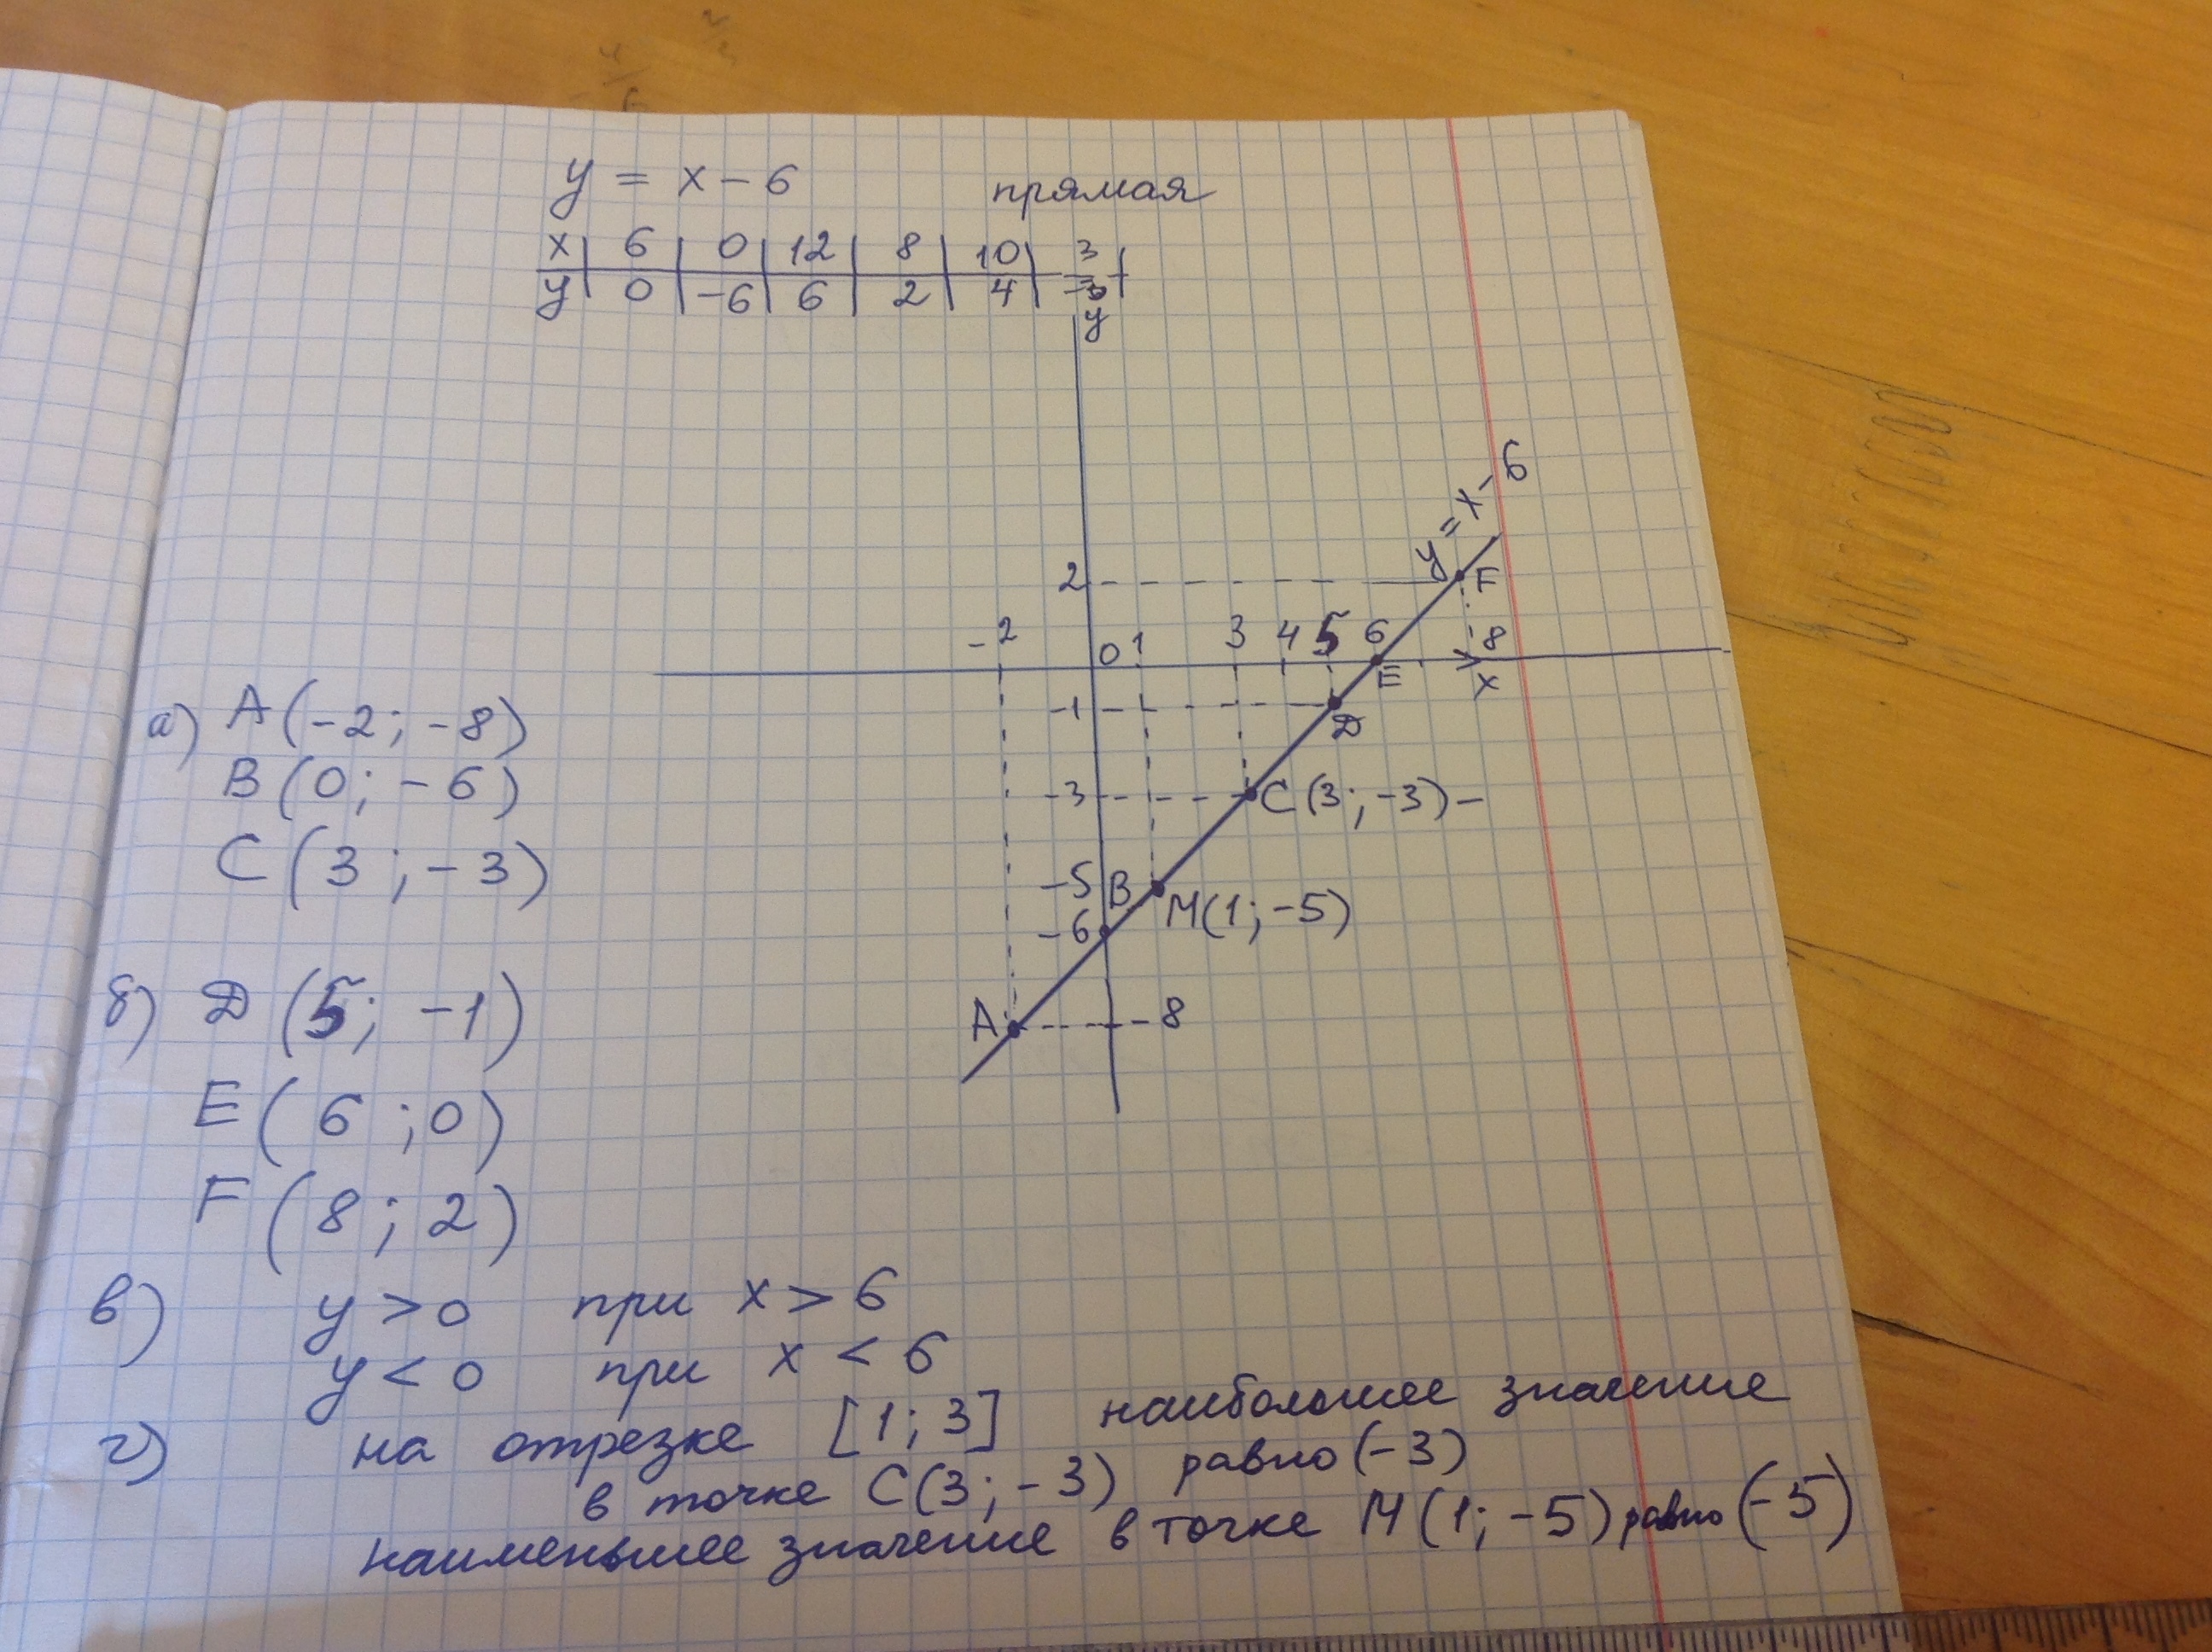 y = x - 6 прямая
x | 6 | 0 | 12 | 8 | 10 | 3 |
y | 0 | -6 | 6 | 2 | 4 | -3 |
y
y = x - 6
2 F
-2 0 1 3 4 5 6 8
E x
-1 D
-3 C(3; -3) -
-5 B M(1; -5)
-6
A -8
а) A(-2; -8)
B(0; -6)
C(3; -3)
б) D(5; -1)
E(6; 0)
F(8; 2)
в) y > 0 при x > 6
y < 0 при x < 6
г) на отрезке [1; 3] наибольшее значение
в точке C(3; -3) равно (-3)
наименьшее значение в точке M(1; -5) равно (-5)